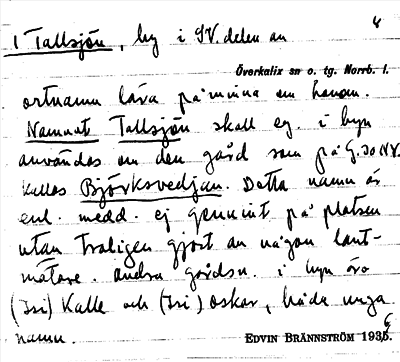 1 Tallsjön, by i SV. delen av
Överkalix sn o. tg. Norrb. l.
ortnamn lära påminna om honom.
Namnet Tallsjön skall eg. i byn
användas om den gård som på G. 30 NV.
kallas Björksvedjan. Detta namn är
enl. medd. ej genuint på platsen
utan troligen gjort av någon lant-
mätare. Andra gårdsn. i byn äro
(Isi) Kalle och (Isi) Oskar, båda unga
namn.
EDVIN BRÄNNSTRÖM 1935.